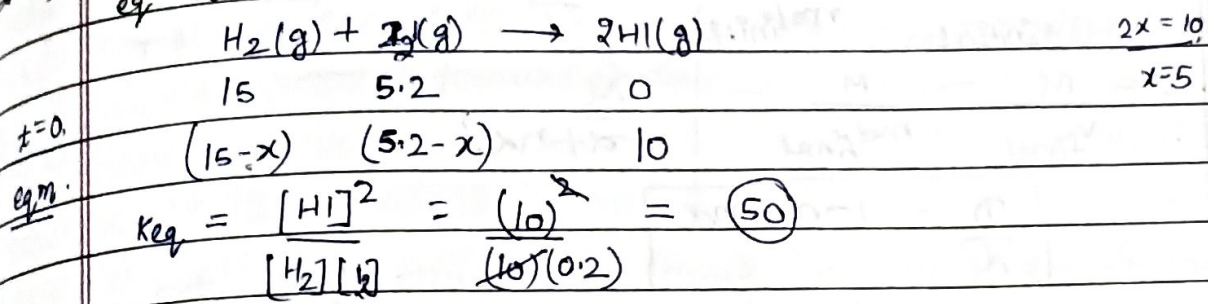 eq
H₂(g) + I₂(g) → 2HI(g)
2x = 10
15 5.2 0
x=5
t=0,
(15-x) (5.2-x) 10
eqm.
Keq = [HI]² / [H₂][I₂] = (10)² / (10)(0.2) = 50